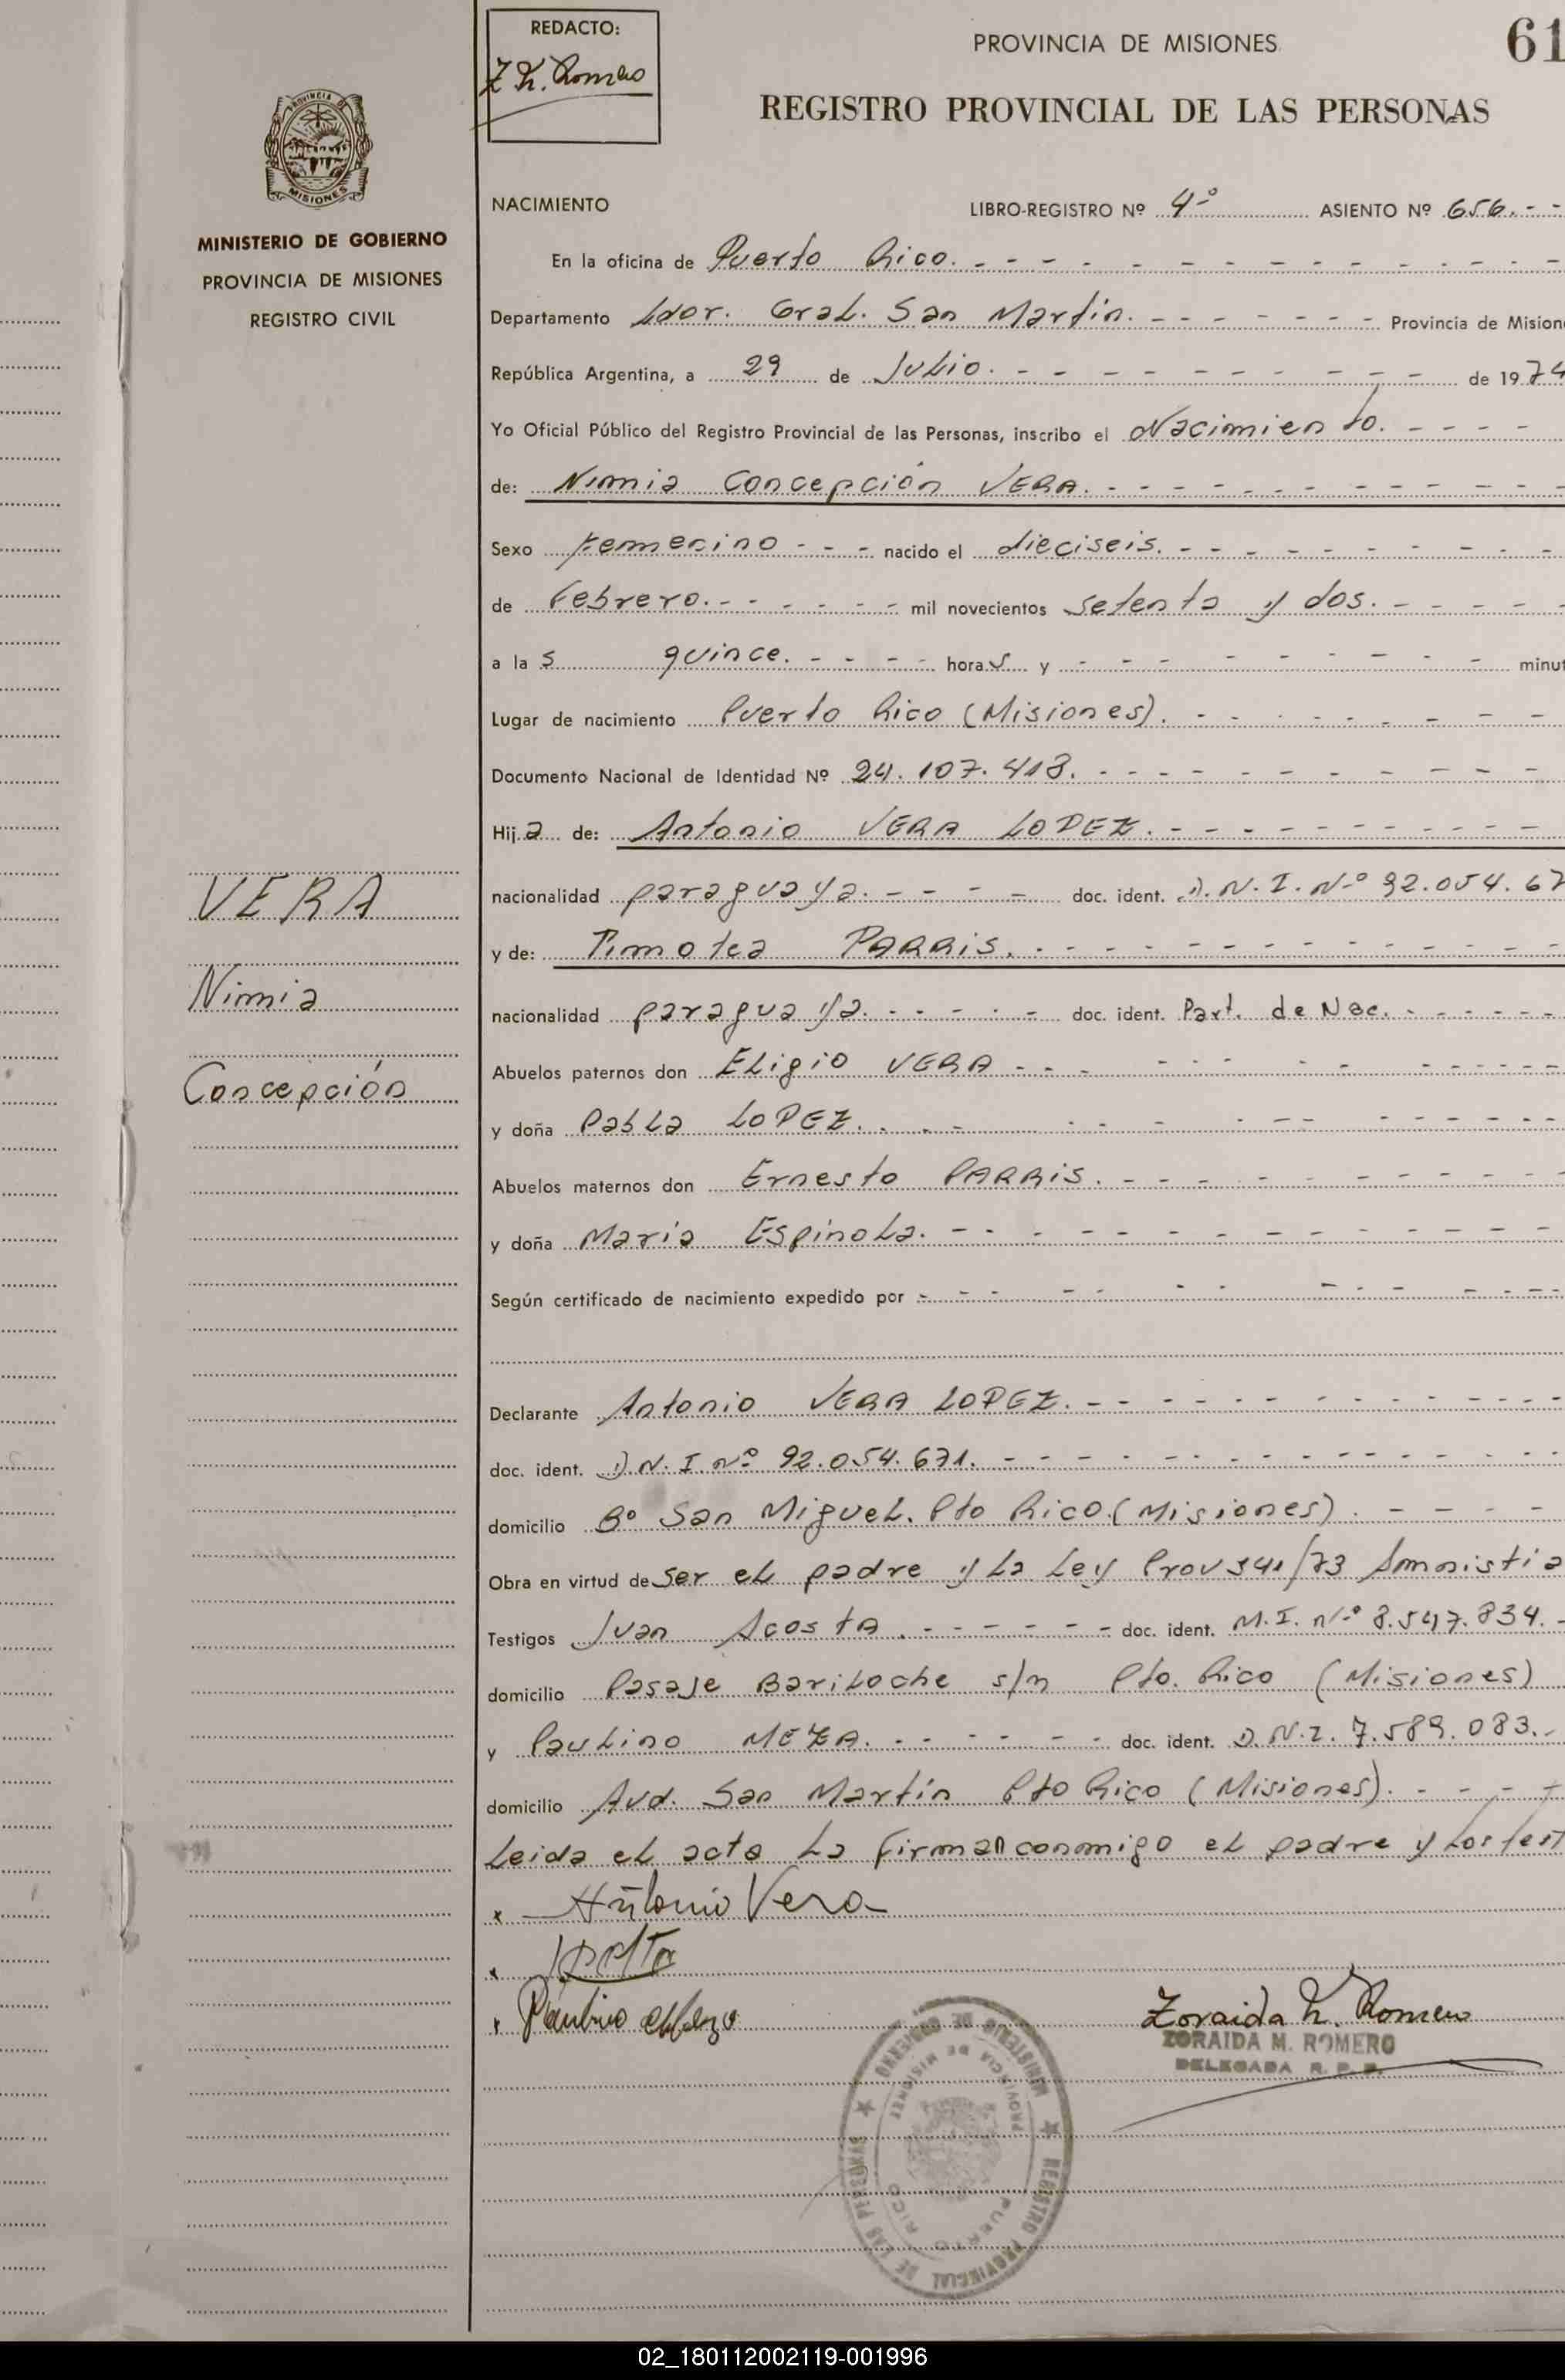 REDACTO:
Z M. Romero
PROVINCIA DE MISIONES
61
REGISTRO PROVINCIAL DE LAS PERSONAS
PROVINCIA DE
MISIONES
MINISTERIO DE GOBIERNO
PROVINCIA DE MISIONES
REGISTRO CIVIL
NACIMIENTO LIBRO-REGISTRO Nº 4º ASIENTO Nº 656.
En la oficina de Puerto Rico.
Departamento Ldor. Gral. San Martín. Provincia de Mision
República Argentina, a 29 de Julio. de 1974
Yo Oficial Público del Registro Provincial de las Personas, inscribo el Nacimiento.
de: Nimia Concepción VERA.
Sexo Femenino nacido el dieciseis.
de Febrero. mil novecientos setenta y dos.
a la s quince. hora s y minut
Lugar de nacimiento Puerto Rico (Misiones).
Documento Nacional de Identidad Nº 24.107.413.
Hij a de: Antonio VERA LOPEZ.
nacionalidad paraguaya. doc. ident. D.N.I. Nº 92.054.67
y de: Timotea PARRIS.
nacionalidad paraguaya. doc. ident. Part. de Nac.
Abuelos paternos don ELigio VERA
y doña PabLa LOPEZ.
Abuelos maternos don Ernesto PARRIS.
y doña María EspinoLa.
Según certificado de nacimiento expedido por
VERA
Nimia
Concepción
Declarante Antonio VERA LOPEZ.
doc. ident. D.N.I Nº 92.054.671.
domicilio Bº San MigueL. Pto Rico.(Misiones).
Obra en virtud de ser eL padre y La Ley Prov 341/73 Amnistia
Testigos Juan AcostA. doc. ident. M.I. Nº 8.547.834.
domicilio Pasaje BariLoche s/n Pto. Rico (Misiones)
y PauLino MEZA. doc. ident. D.N.I. 7.589.083.
domicilio Avd. San Martín Pto Rico (Misiones).
Leida eL acta La firman conmigo eL padre y Los test
x Antonio Vera
x
x Paulino Meza
Zoraida M. Romero
ZORAIDA M. ROMERO
DELEGADA R. P. P.
MINISTERIO DE GOBIERNO ★ REGISTRO PROVINCIAL DE LAS PERSONAS ★
PROVINCIA DE MISIONES
PUERTO RICO
02_180112002119-001996